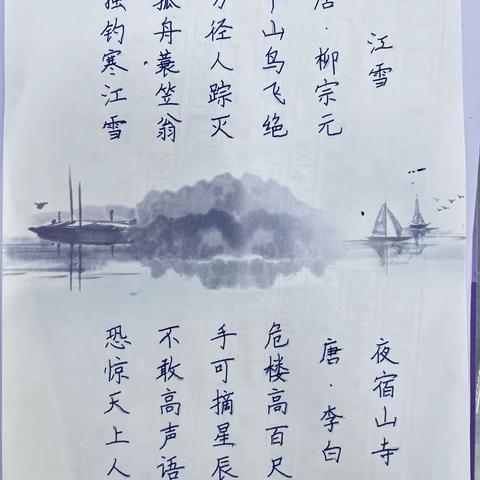 江雪
唐·柳宗元
山鸟飞绝
万径人踪灭
孤舟蓑笠翁
独钓寒江雪
夜宿山寺
唐·李白
危楼高百尺
手可摘星辰
不敢高声语
恐惊天上人